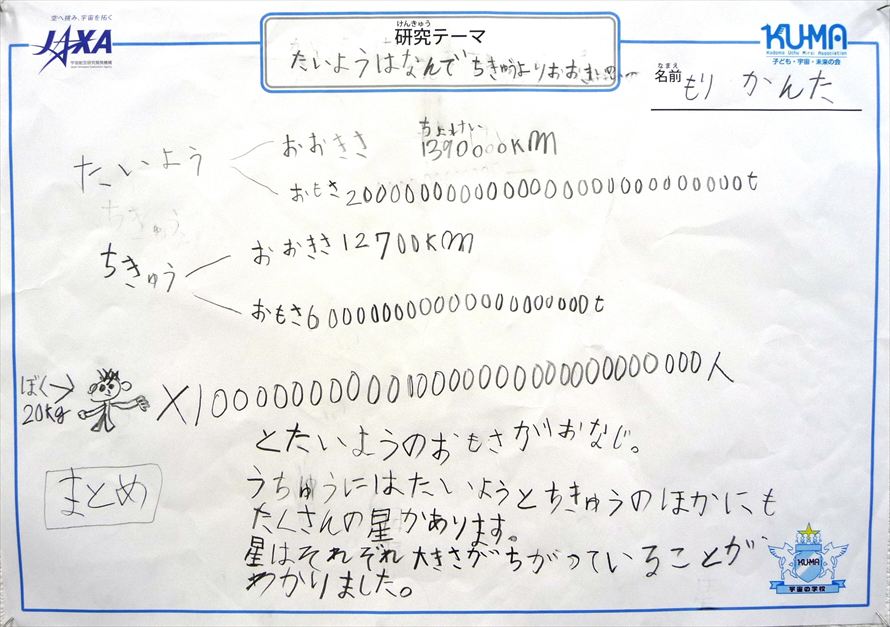 空へ挑み、宇宙を拓く
JAXA
宇宙航空研究開発機構
けんきゅう
研究テーマ
たいようはなんで ちきゅうよりおおき
KU-MA
Kodomo Uchu Mirai Association
子ども・宇宙・未来の会
なまえ
名前 もり かんた
ちょっけい
たいよう おおきさ 1390000KM
おもさ
ちきゅう
ちきゅう おおきさ 12700KM
おもさ
ぼく→
20kg
人
とたいようのおもさがおなじ。
まとめ
うちゅうにはたいようとちきゅうのほかにも
たくさんの星があります。
星はそれぞれ大きさがちがっていることが
わかりました。
KU-MA
宇宙の学校